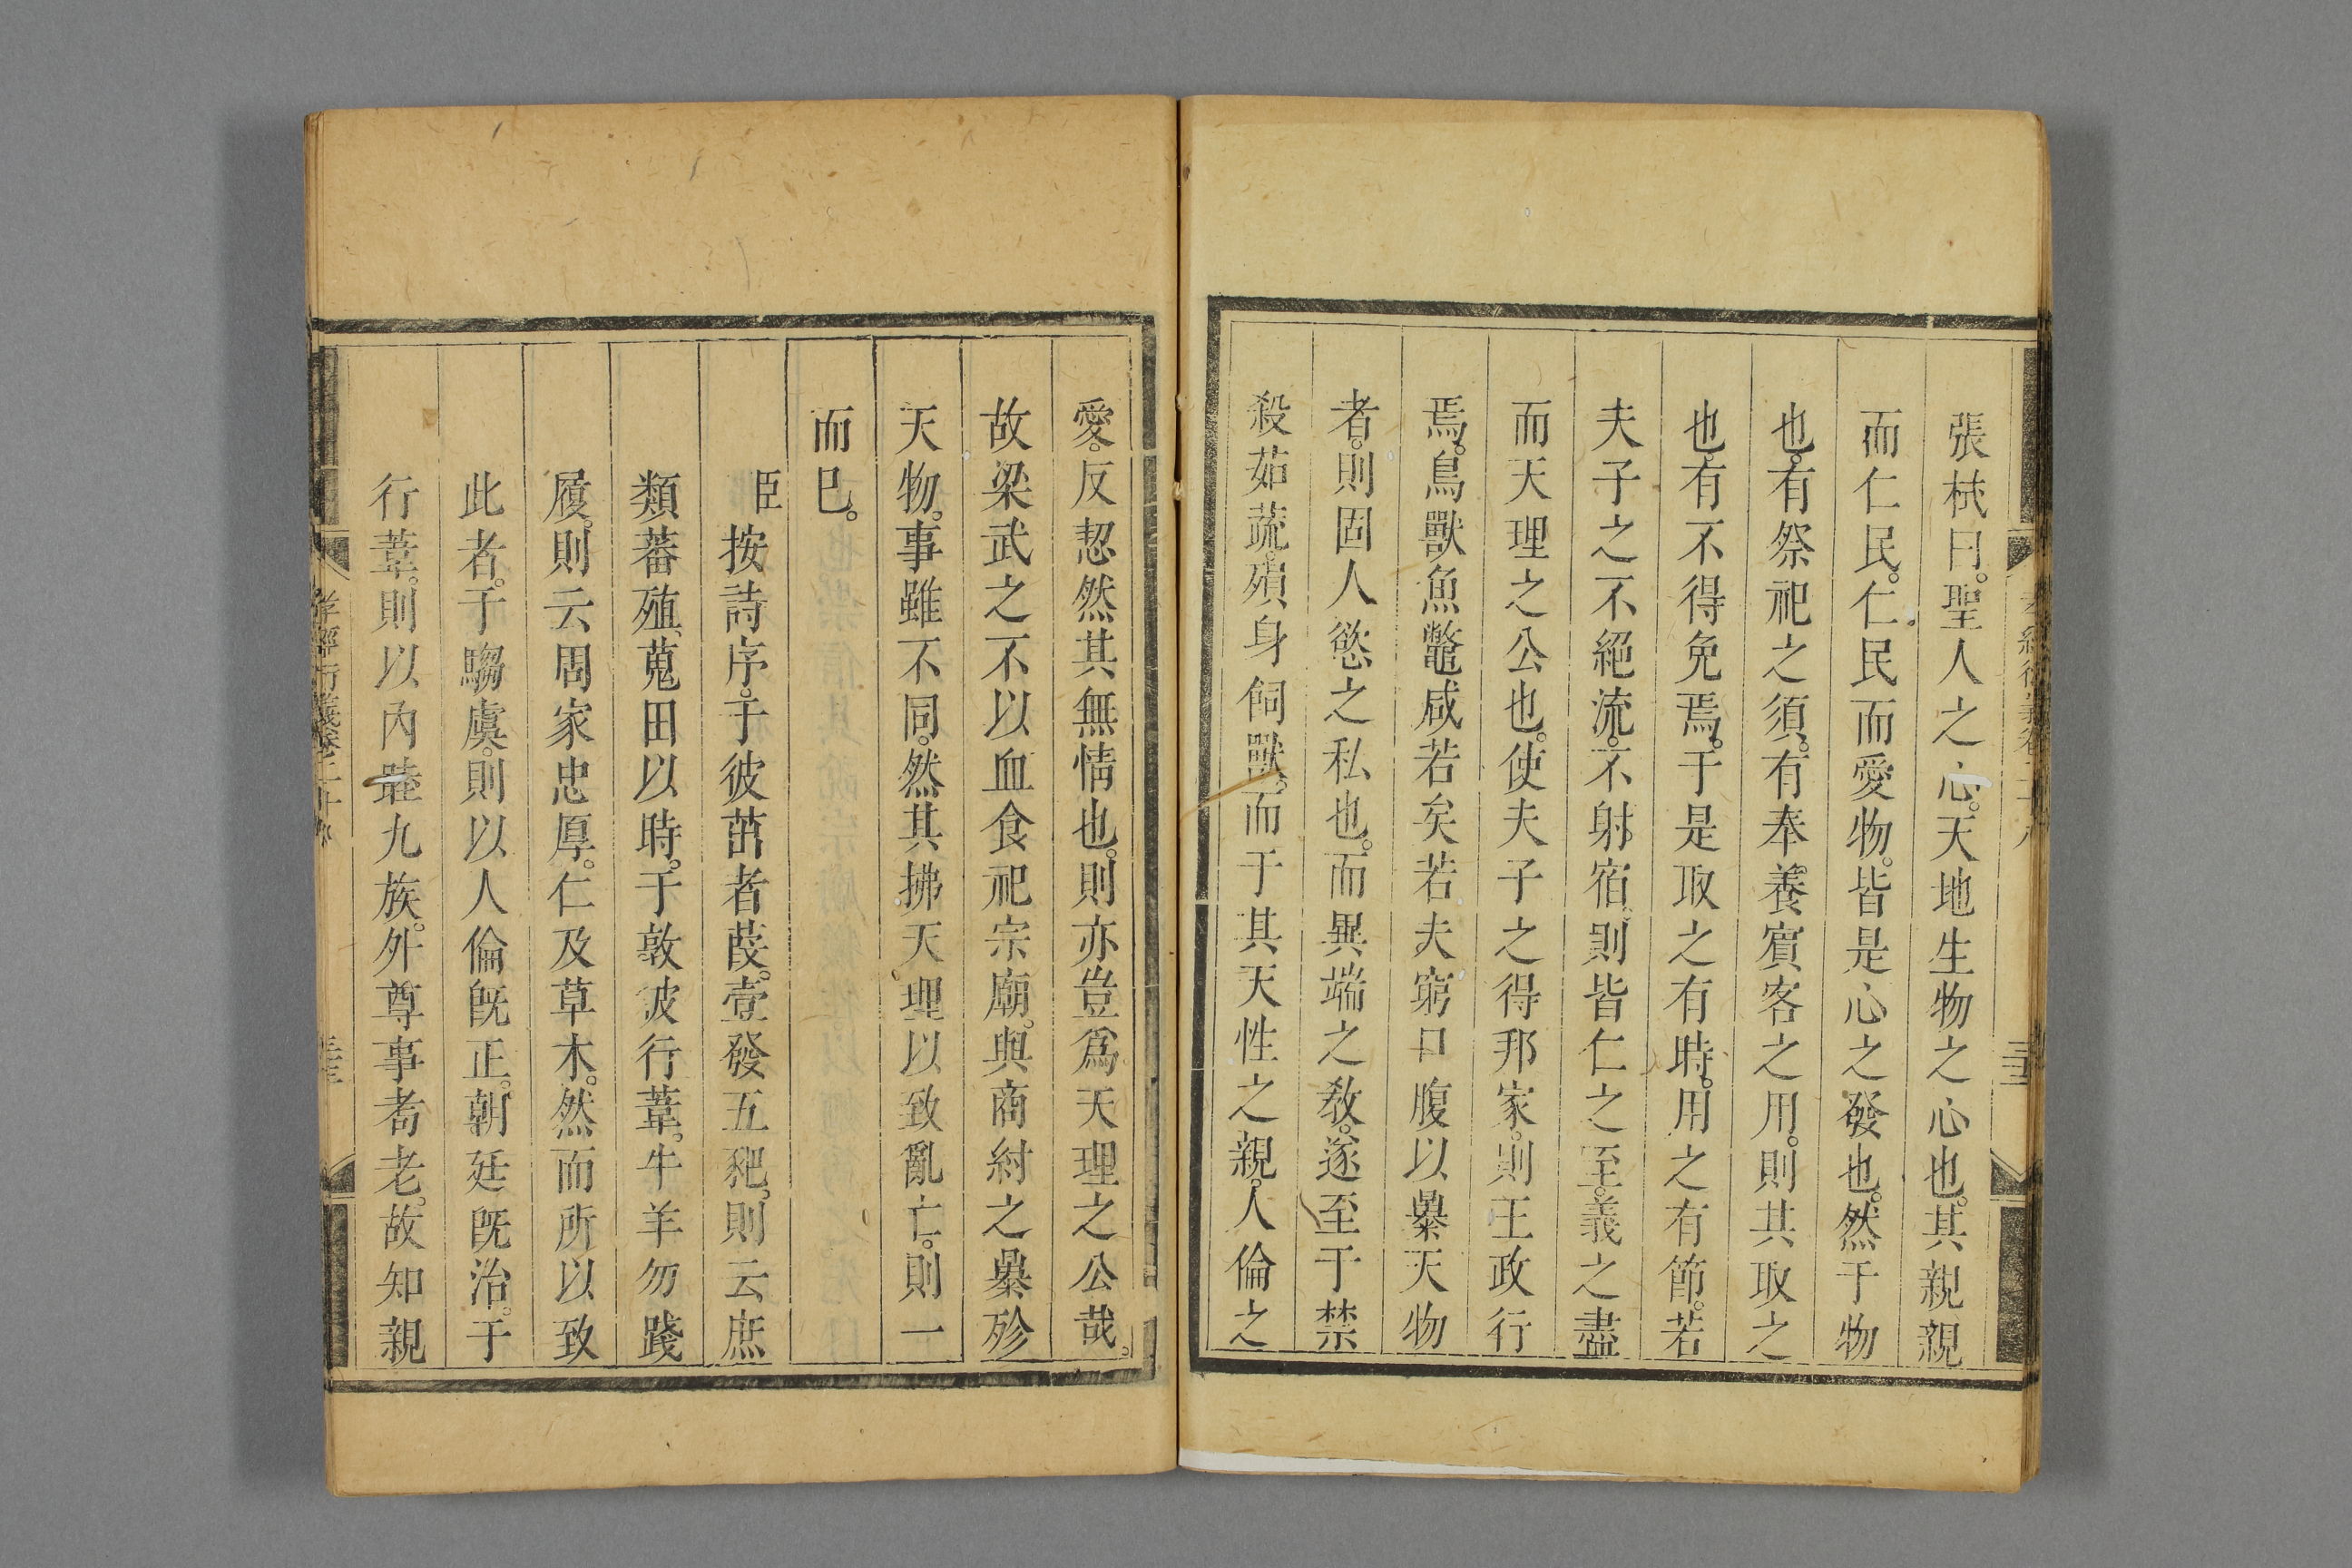 張栻曰。聖人之心。天地生物之心也。其親親
而仁民。仁民而愛物。皆是心之發也。然于物
也。有祭祀之須。有奉養賓客之用。則其取之
也。有不得免焉。于是取之有時。用之有節。若
夫子之不絕流。不射宿。則皆仁之至。義之盡
而天理之公也。使夫子之得邦家。則王政行
焉。鳥獸魚鼈咸若矣若夫窮口腹以㬥天物
者。則固人慾之私也。而異端之敎。遂至于禁
殺茹蔬。殞身飼獸。而于其天性之親。人倫之
愛。反恝然其無情也。則亦豈爲天理之公哉。
故梁武之不以血食祀宗廟。與商紂之㬥殄
天物。事雖不同。然其拂天理以致亂亡。則一
而已。
臣按詩序。于彼茁者葭。壹發五豝。則云庶
類蕃殖。蒐田以時。于敦彼行葦。牛羊勿踐
履。則云周家忠厚。仁及草木。然而所以致
此者。于騶虞。則以人倫旣正。朝廷旣治。于
行葦。則以內睦九族。外尊事耇老。故知親